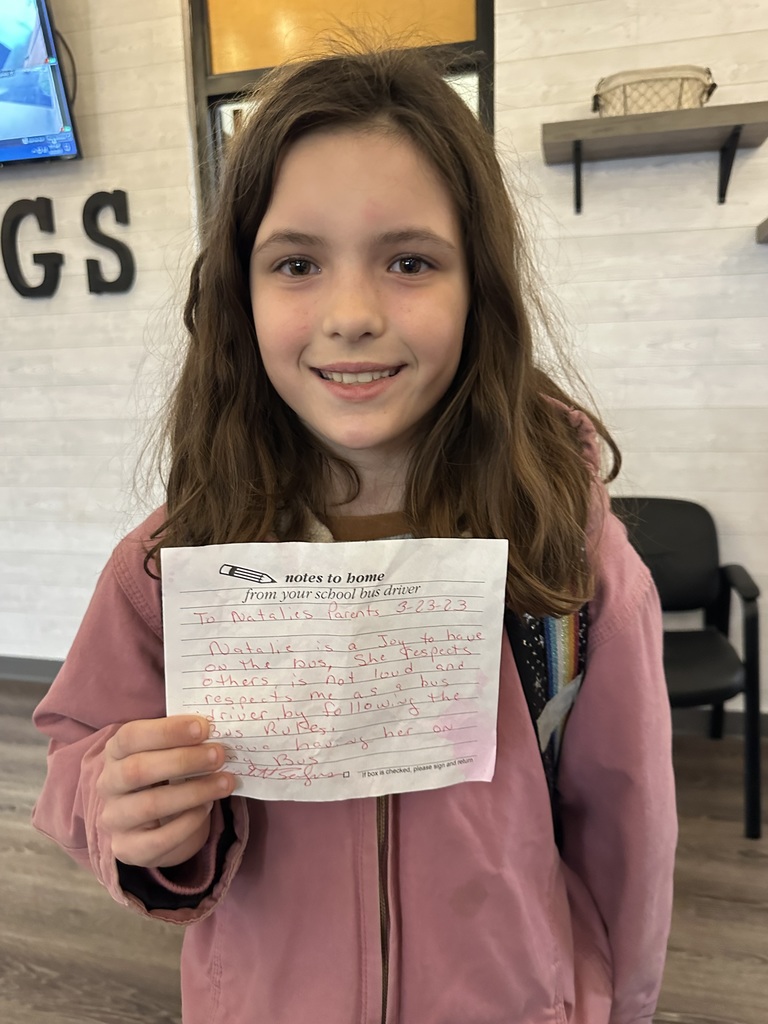 GS
notes to home
from your school bus driver
To Natalies Parents 3-23-23
Natalie is a Joy to have
on the bus, She respects
others is not loud and
respects me as a bus
driver by following the
Bus Rules.
having her on
Bus
If box is checked, please sign and return